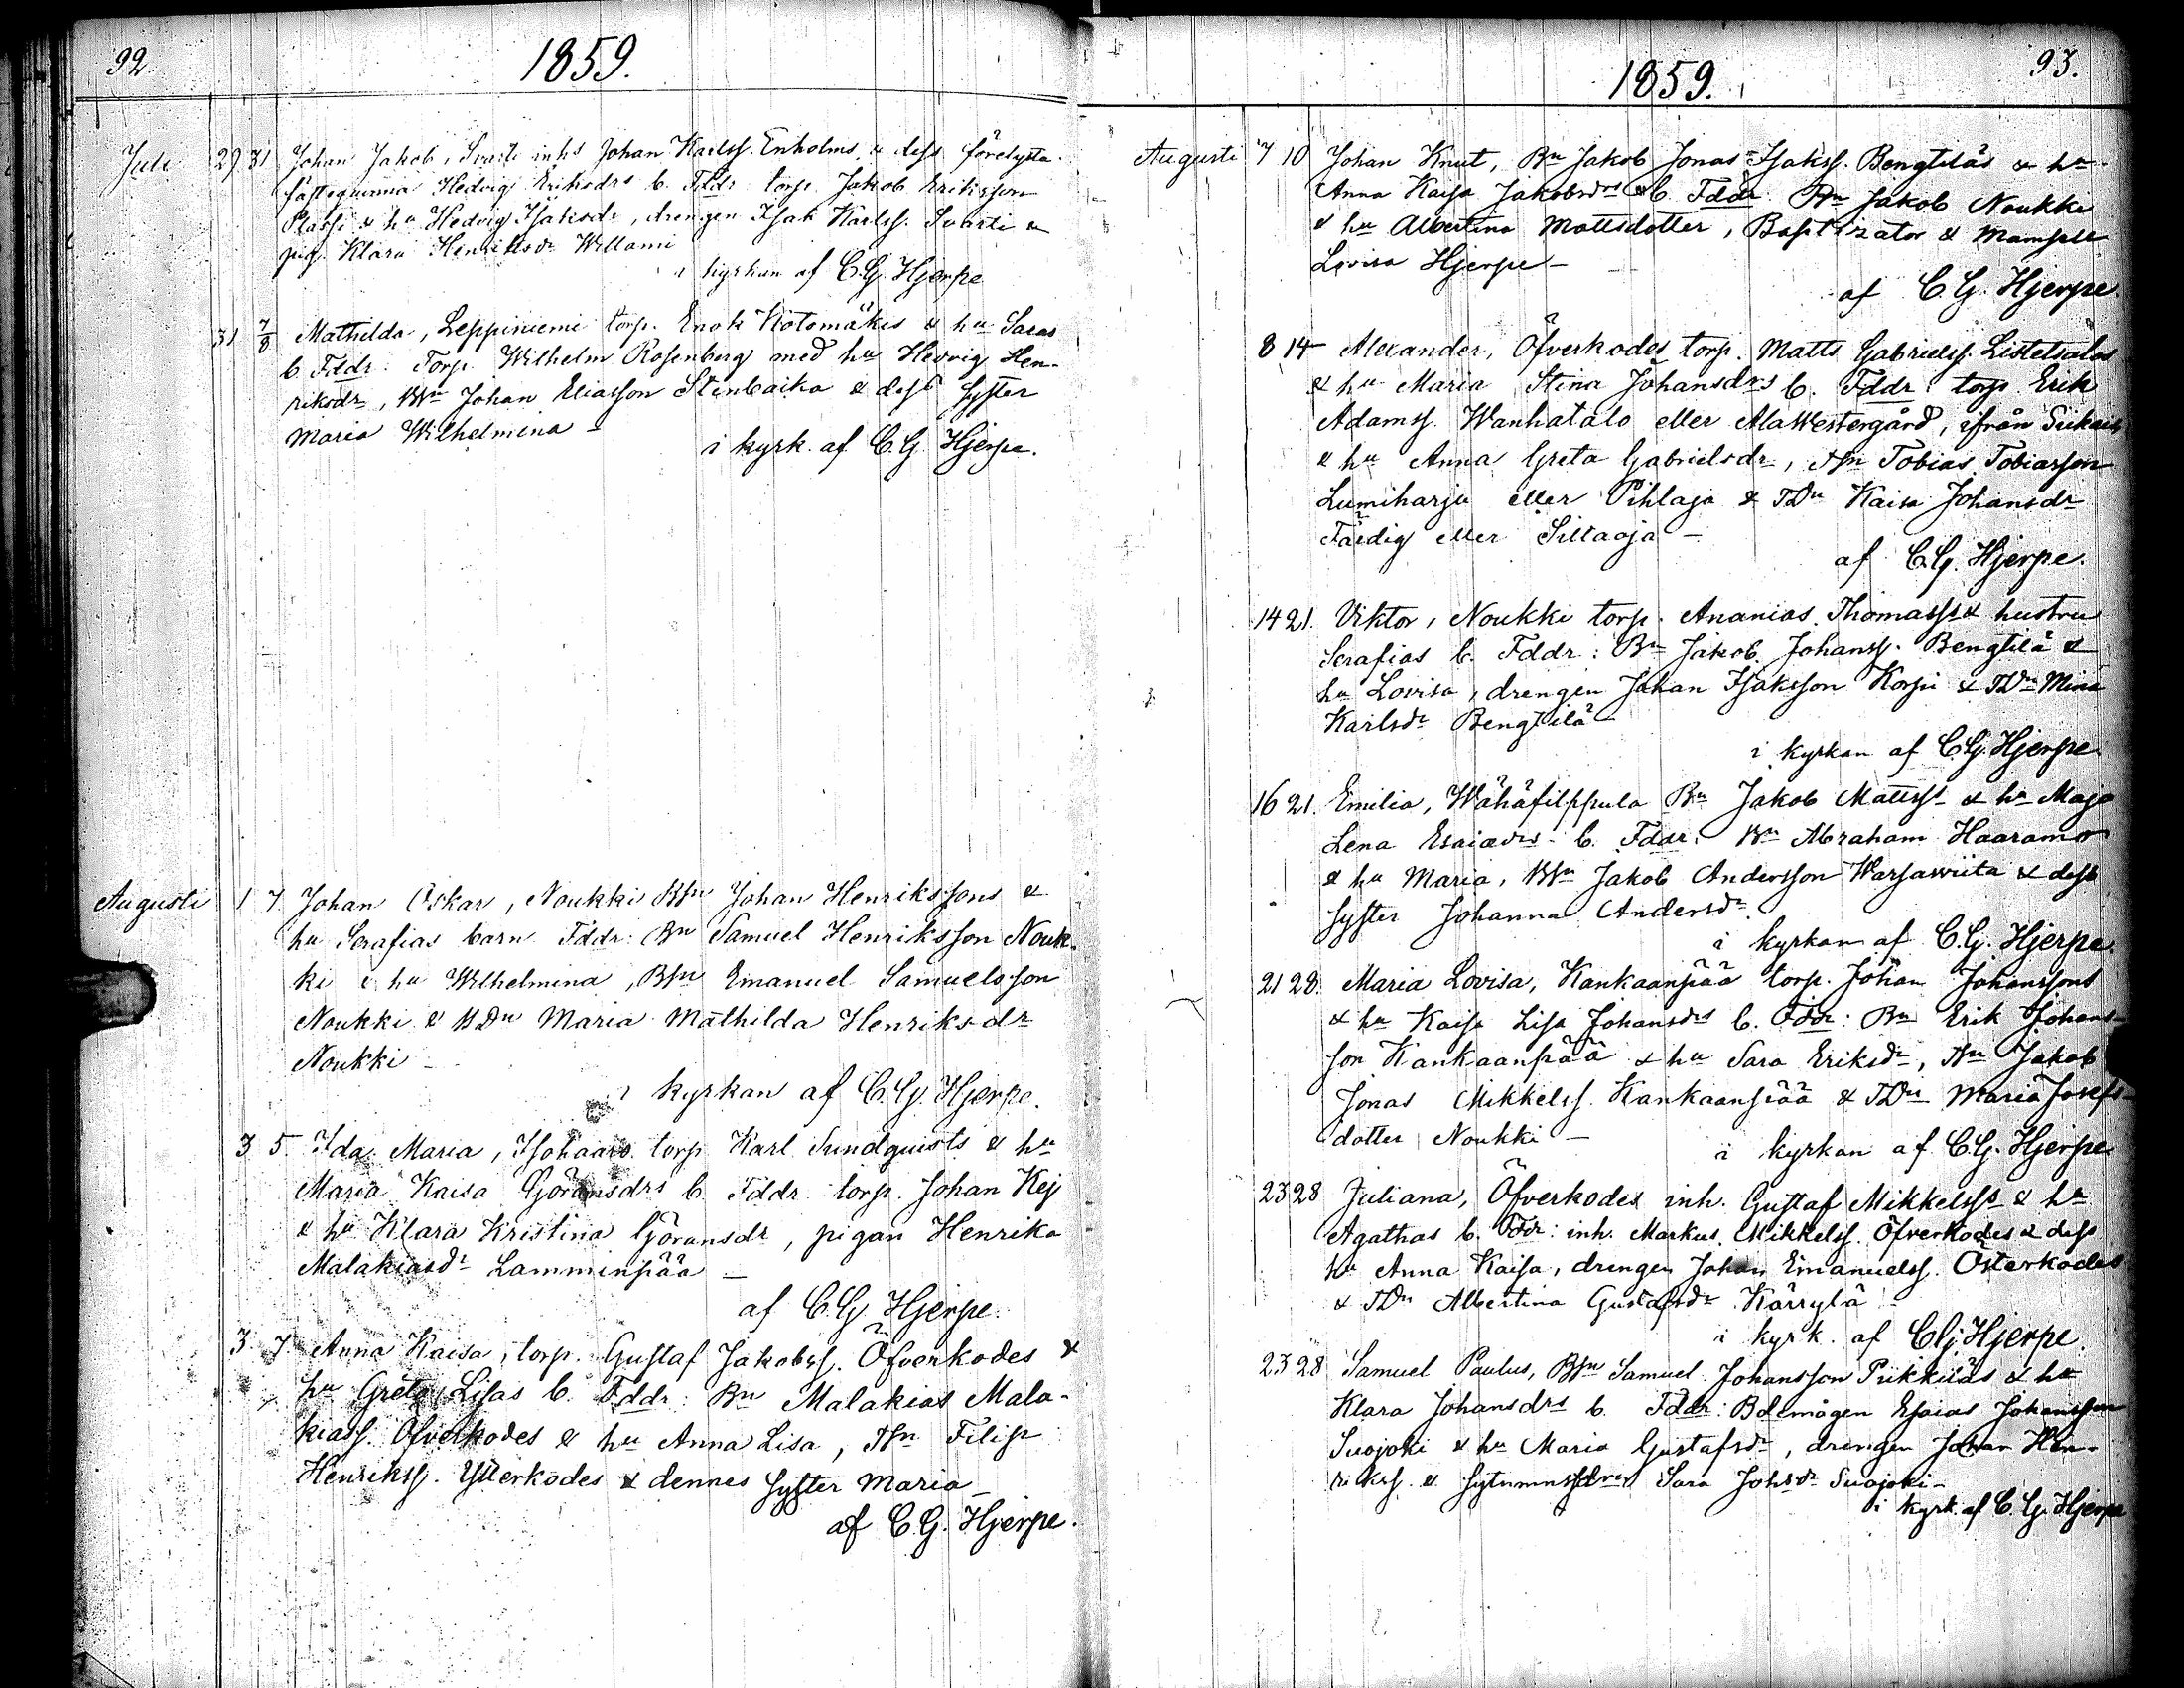 92.
1859.
Juli 29 31 Johan Jakob, Svarti inhs Johan Karlss. Enholms & dess förelysta
fästeqvinna Hedvig Eriksdrs b. Fddr torp. Jakob Eriksson
Plassi & hu Hedvig Isaksdr, drengen Isak Karlss. Svarti &
pig. Klara Henriksdr Willami
i kyrkan af C.G. Hjerpe
31 7/8 Mathilda, Leppiniemi torp. Enok Kotomäkis & hu Saras
b. Fddr: Torp. Wilhelm Rosenberg med hu Hedvig Hen-
riksdr, Johan Eliasson Stenbacka & dess syster
Maria Wilhelmina -
i kyrk. af C.G. Hjerpe.
Augusti 1 7 Johan Oskar, Noukki Bsn Johan Henrikssons &
hu Serafias barn Fddr: Bn Samuel Henriksson Nouk-
ki & hu Wilhelmina, Bsn Emanuel Samuelsson
Noukki & BDn Maria Mathilda Henriksdr
Noukki -
i kyrkan af C.G. Hjerpe.
3 5 Ida Maria, torp Karl Sundquists & hu
Maria Kaisa Göransdrs b. Fddr torp. Johan Kej
& hu Klara Kristina Göransdr, pigan Henrika
Malakiasdr Lamminpää -
af C.G. Hjerpe.
3 7 Anna Kaisa, torp. Gustaf Jakobss. Öfverkodes &
hu Greta Lisas b. Fddr: Bn Malakias Mala-
kiass. Öfverkodes & hu Anna Lisa, Filip
Henrikss. Ytterkodes & dennes syster Maria -
af C.G. Hjerpe.
1859.
93.
Augusti 7 10 Johan Knut, Bn Jakob Jonas Isakss. Bengtiläs & hu
Anna Kaisa Jakobsdrs b. Fddr: Bn Jakob Noukki
& hu Albertina Mattsdotter, Baptizator & Mamsell
Lovisa Hjerpe -
af C.G. Hjerpe.
8 14 Alexander, Öfverkodes torp. Matts Gabrielss. Listelsalos
& hu Maria Stina Johansdrs b. Fddr: torp Erik
Adamss. Wanhatalo eller AlaWestergård, ifrån
& hu Anna Greta Gabrielsdr, Tobias Tobiasson
Lumiharju eller Pihlaja & TDn Kaisa Johansdr
Färdig eller Sillaoja -
af C.G. Hjerpe.
14 21. Viktor, Noukki torp. Ananias Thomass & hustru
Serafias b. Fddr: Bn Jakob Johanss. Bengtilä &
hu Lovisa, drengen Johan Isaksson Korpi & TDn Mina
Karlsdr Bengtilä -
i kyrkan af C.G. Hjerpe
16 21. Emilia, Wähäfilppula Bn Jakob Mattss & hu Maja
Lena Esaiædrs b. Fddr: Bn Abraham Haaramo
& hu Maria, Bsn Jakob Andersson Warsawiita & dess
syster Johanna Andersdr.
i kyrkan af C.G. Hjerpe.
21 28. Maria Lovisa, Kankaanpää torp. Johan Johanssons
& hu Kaisa Lisa Johansdrs b. Fddr: Bn Erik Johans-
son Kankaanpää & hu Sara Eriksdr, Jakob
Jonas Mikkelss. Kankaanpää & TDn Maria Josefs-
dotter Noukki -
i kyrkan af C.G. Hjerpe
23 28 Juliana, Öfverkodes inh. Gustaf Mikkelss & hu
Agathas b. Fddr: inh. Markus Mikkelss. Öfverkodes & dess
hu Anna Kaisa, drengen Johan Emanuelss. Österkodes
& TDn Albertina Gustafsdr Kärrylä -
i kyrk. af C.G. Hjerpe.
23 28 Samuel Paulus, Bsn Samuel Johansson Piikkiläs & hu
Klara Johansdrs b. Fddr: Bdemågen Esaias Johansson
Suojoki & hu Maria Gustafsdr, drengen Johan Hen-
rikss. & Sara Johsdr Suojoki -
i kyrk. af C.G. Hjerpe